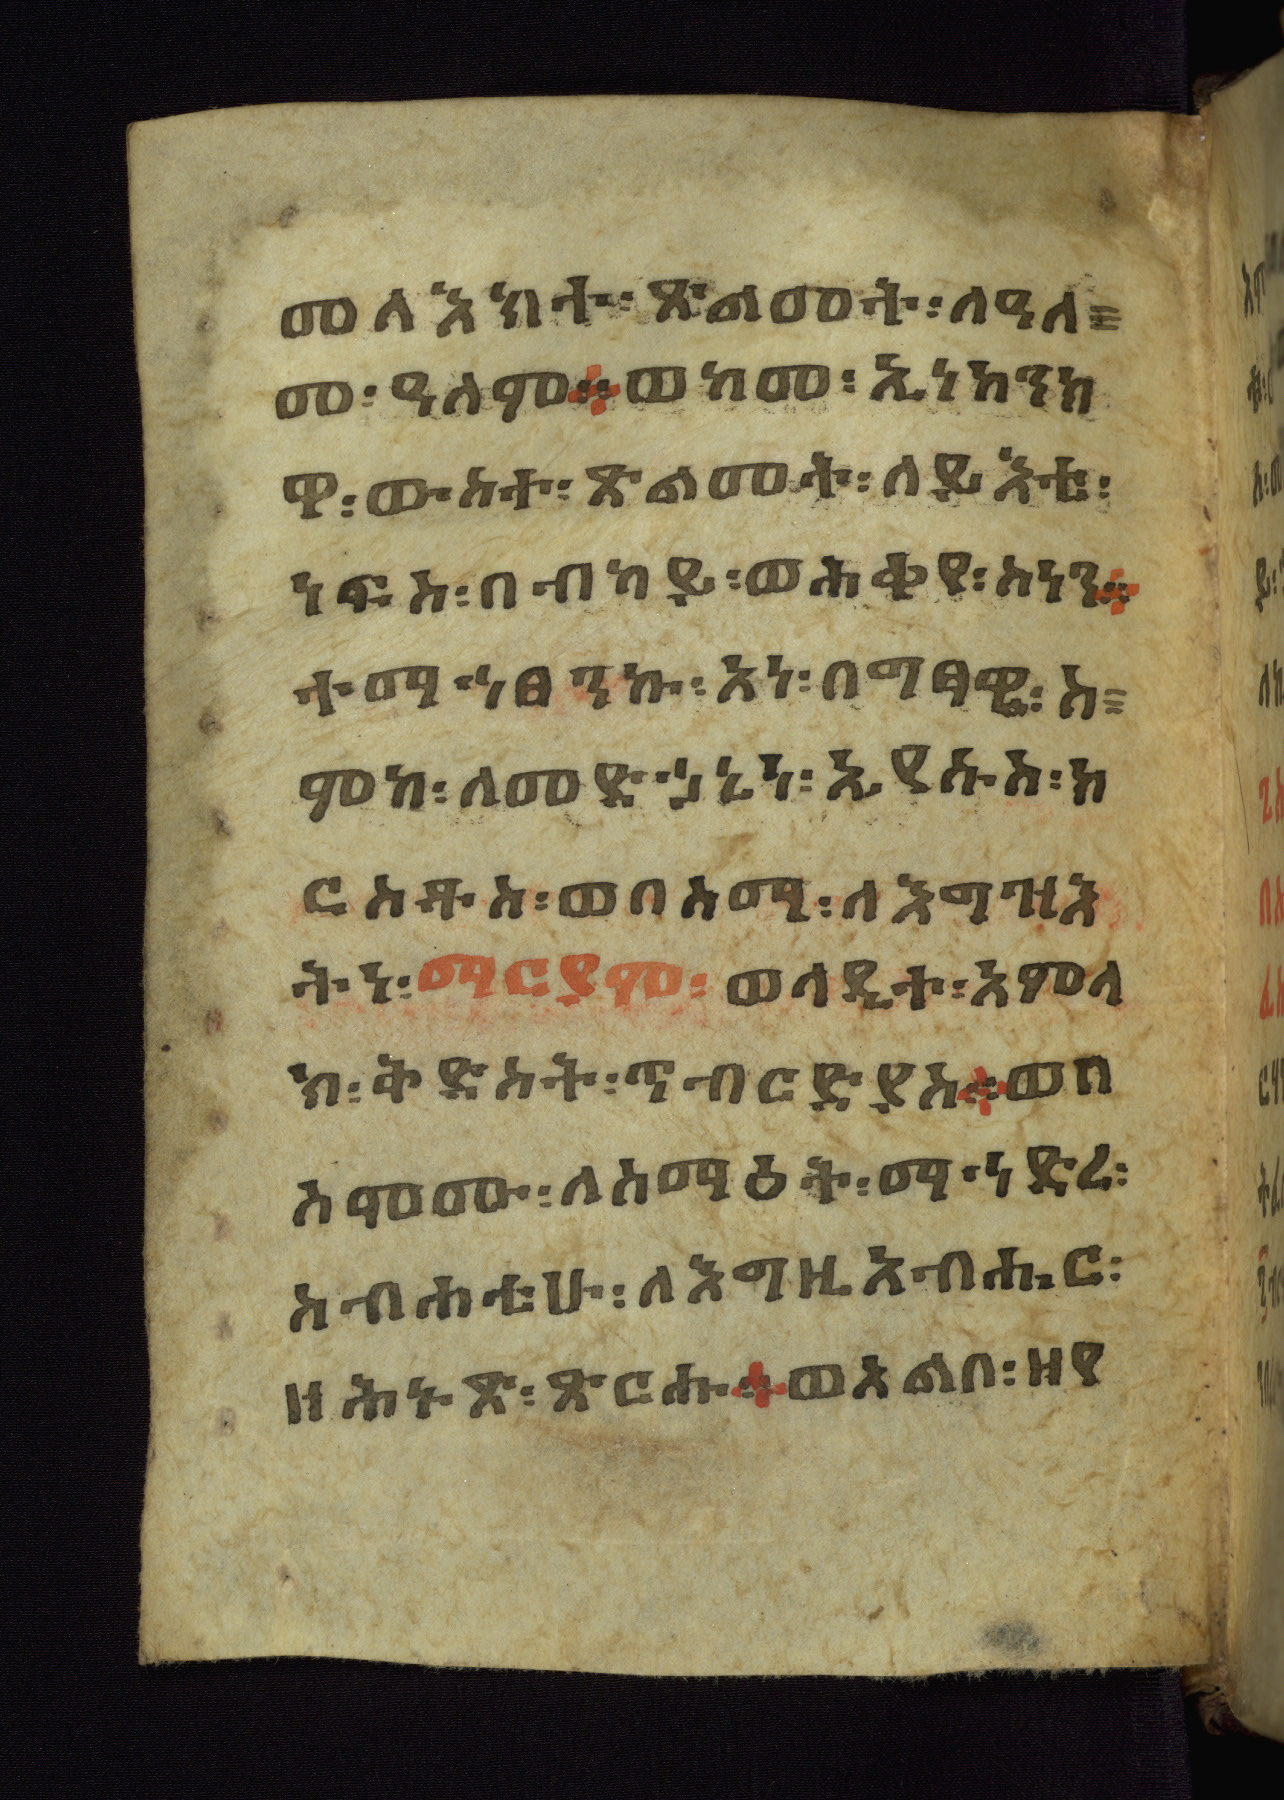 መላእክተ፡ ጽልመት፡ ለዓለ
መ፡ ዓለም። ወከመ፡ ኢነኪንክ
ዋ፡ ውስተ፡ ጽልመት፡ ለይእቲ፡
ነፍስ፡ በብካይ፡ ወሕቂየ፡ ስነን።
ተማኅፀንኩ፡ እነ፡ በማፃዊ፡ ስ
ምከ፡ ለመድኃኒነ፡ ኢየሱስ፡ ክ
ርስቶስ፡ ወበስማ፡ ለእግዝእ
ትነ፡ ማርያም፡ ወላዲተ፡ አምላ
ክ፡ ቅድስት፡ ጥብርድያስ። ወበ
ስሞሙ፡ ለሰማዕት፡ ማኅድረ፡
ስብሐቲሁ፡ ለእግዚአብሔር፡
ዘሕኑጽ፡ ጽርሑ። ወአልቦ፡ ዘየ